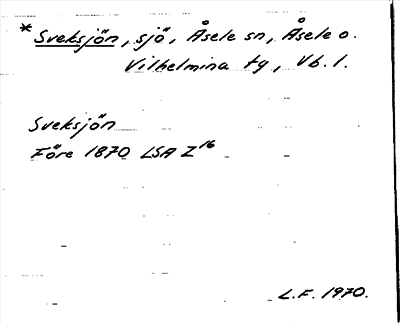 *Sveksjön, sjö, Åsele sn, Åsele o.
Vilhelmina tg, Vb. l.
Sveksjön
Före 1870 LSA Z16
L.F. 1970.